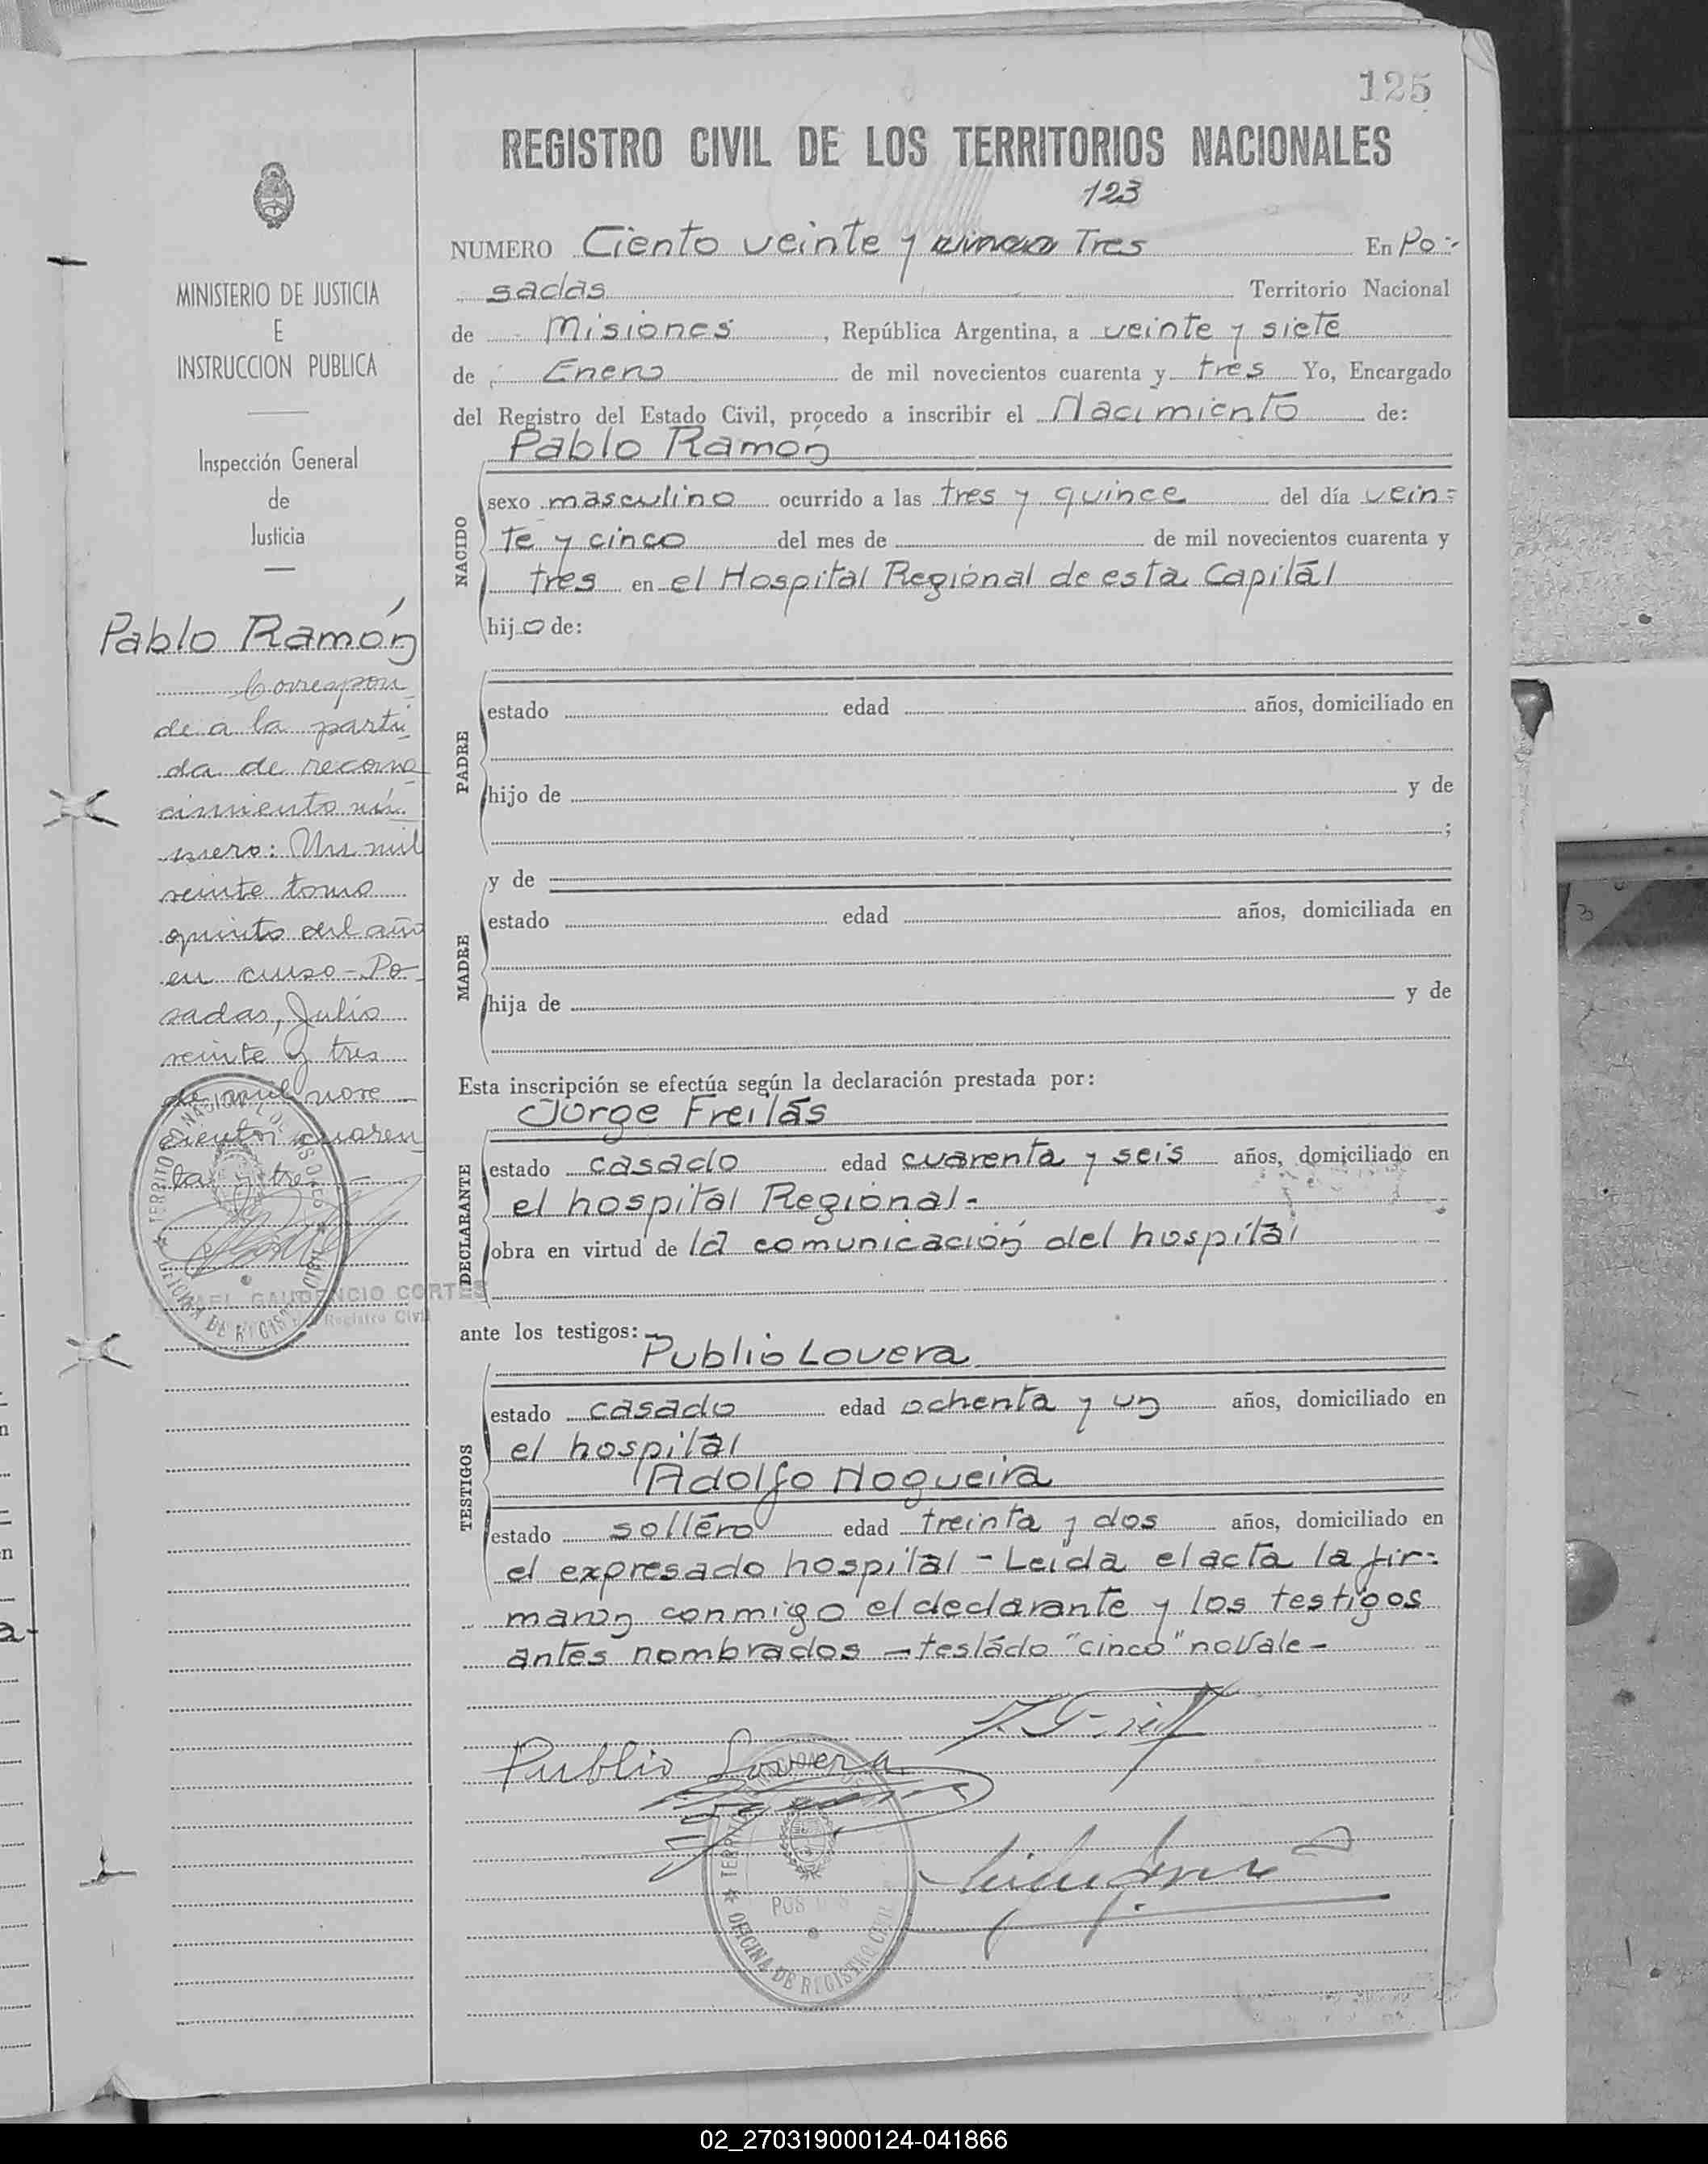 125
REGISTRO CIVIL DE LOS TERRITORIOS NACIONALES
123
NUMERO Ciento veinte y cinco Tres En Po:-
sadas Territorio Nacional
de Misiones, República Argentina, a veinte y siete
de Enero de mil novecientos cuarenta y tres Yo, Encargado
del Registro del Estado Civil, procedo a inscribir el Nacimiento de:
Pablo Ramón
NACIDO
sexo masculino ocurrido a las tres y quince del día vein=
te y cinco del mes de de mil novecientos cuarenta y
tres en el Hospital Regional de esta Capital
hijo de:
PADRE
estado edad años, domiciliado en
hijo de y de
;
MADRE
y de
estado edad años, domiciliada en
hija de y de
Esta inscripción se efectúa según la declaración prestada por:
Jorge Freitas
DECLARANTE
estado casado edad cuarenta y seis años, domiciliado en
el hospital Regional-
obra en virtud de la comunicación del hospital
ante los testigos:
Publio Lovera
TESTIGOS
estado casado edad ochenta y un años, domiciliado en
el hospital
Adolfo Nogueira
estado soltéro edad treinta y dos años, domiciliado en
el expresado hospital - Leida el acta la fir=
maron conmigo el declarante y los testigos
antes nombrados - testádo "cinco" no vale -
Publio Lovera
TERRIT NACIONAL
POS
OFICINA DE REGISTRO CIVIL
MINISTERIO DE JUSTICIA
E
INSTRUCCION PUBLICA
Inspección General
de
Justicia
Pablo Ramón
Correspon
de a la parti
da de recono
cimiento nú
mero: Un mil
veinte tomo
quinto del año
en curso - Po
sadas, Julio
veinte y tres
de mil nove
cientos cuaren
ta y tres -
GAUDENCIO CORTES
Registro Civil
02_270319000124-041866